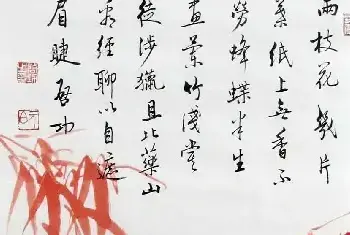 兩枝花幾片
葉紙上無香不
勞蜂蝶半生
畫蘭竹淺嘗
徒涉獵且比藥山
看經聊以自遮
眉睫啟功